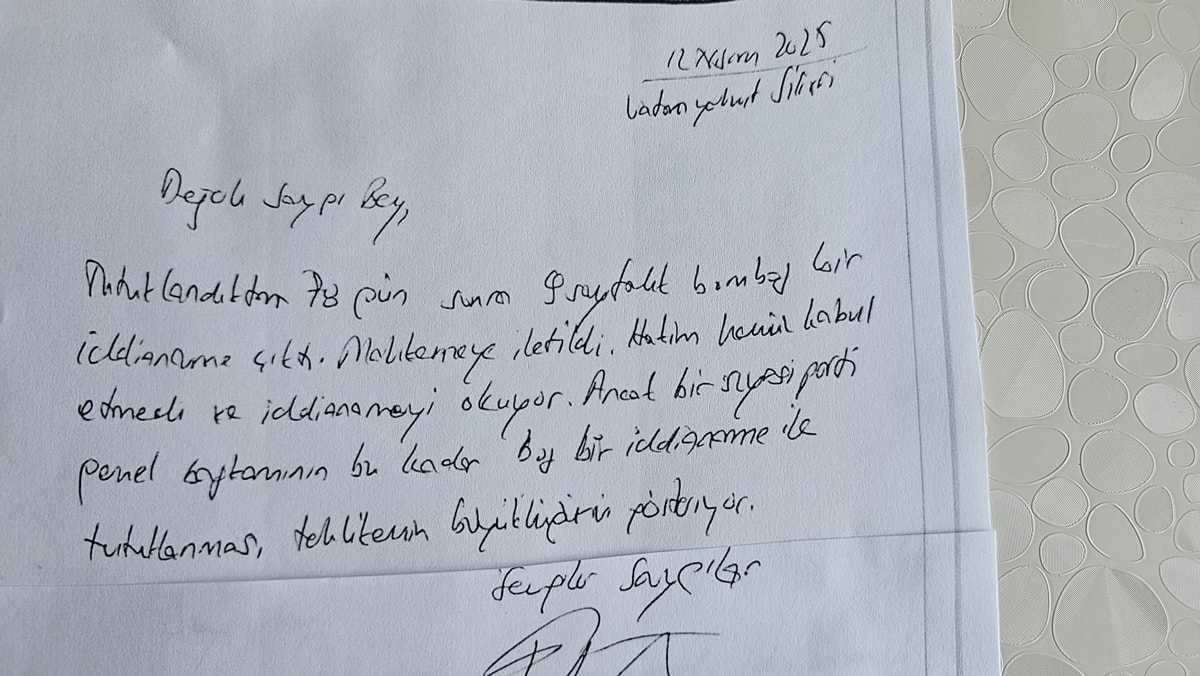 12 Nisan 2025
Silivri
Değerli Saygı Bey,
Tutuklandıktan 78 gün sonra 9 sayfalık bomboş bir
iddianame çıktı. Mahkemeye iletildi. Hakim henüz kabul
etmedi ve iddianameyi okuyor. Ancak bir siyasi parti
genel başkanının bu kadar boş bir iddianame ile
tutuklanması, tehlikenin büyüklüğünü gösteriyor.
Sevgiler Saygılar